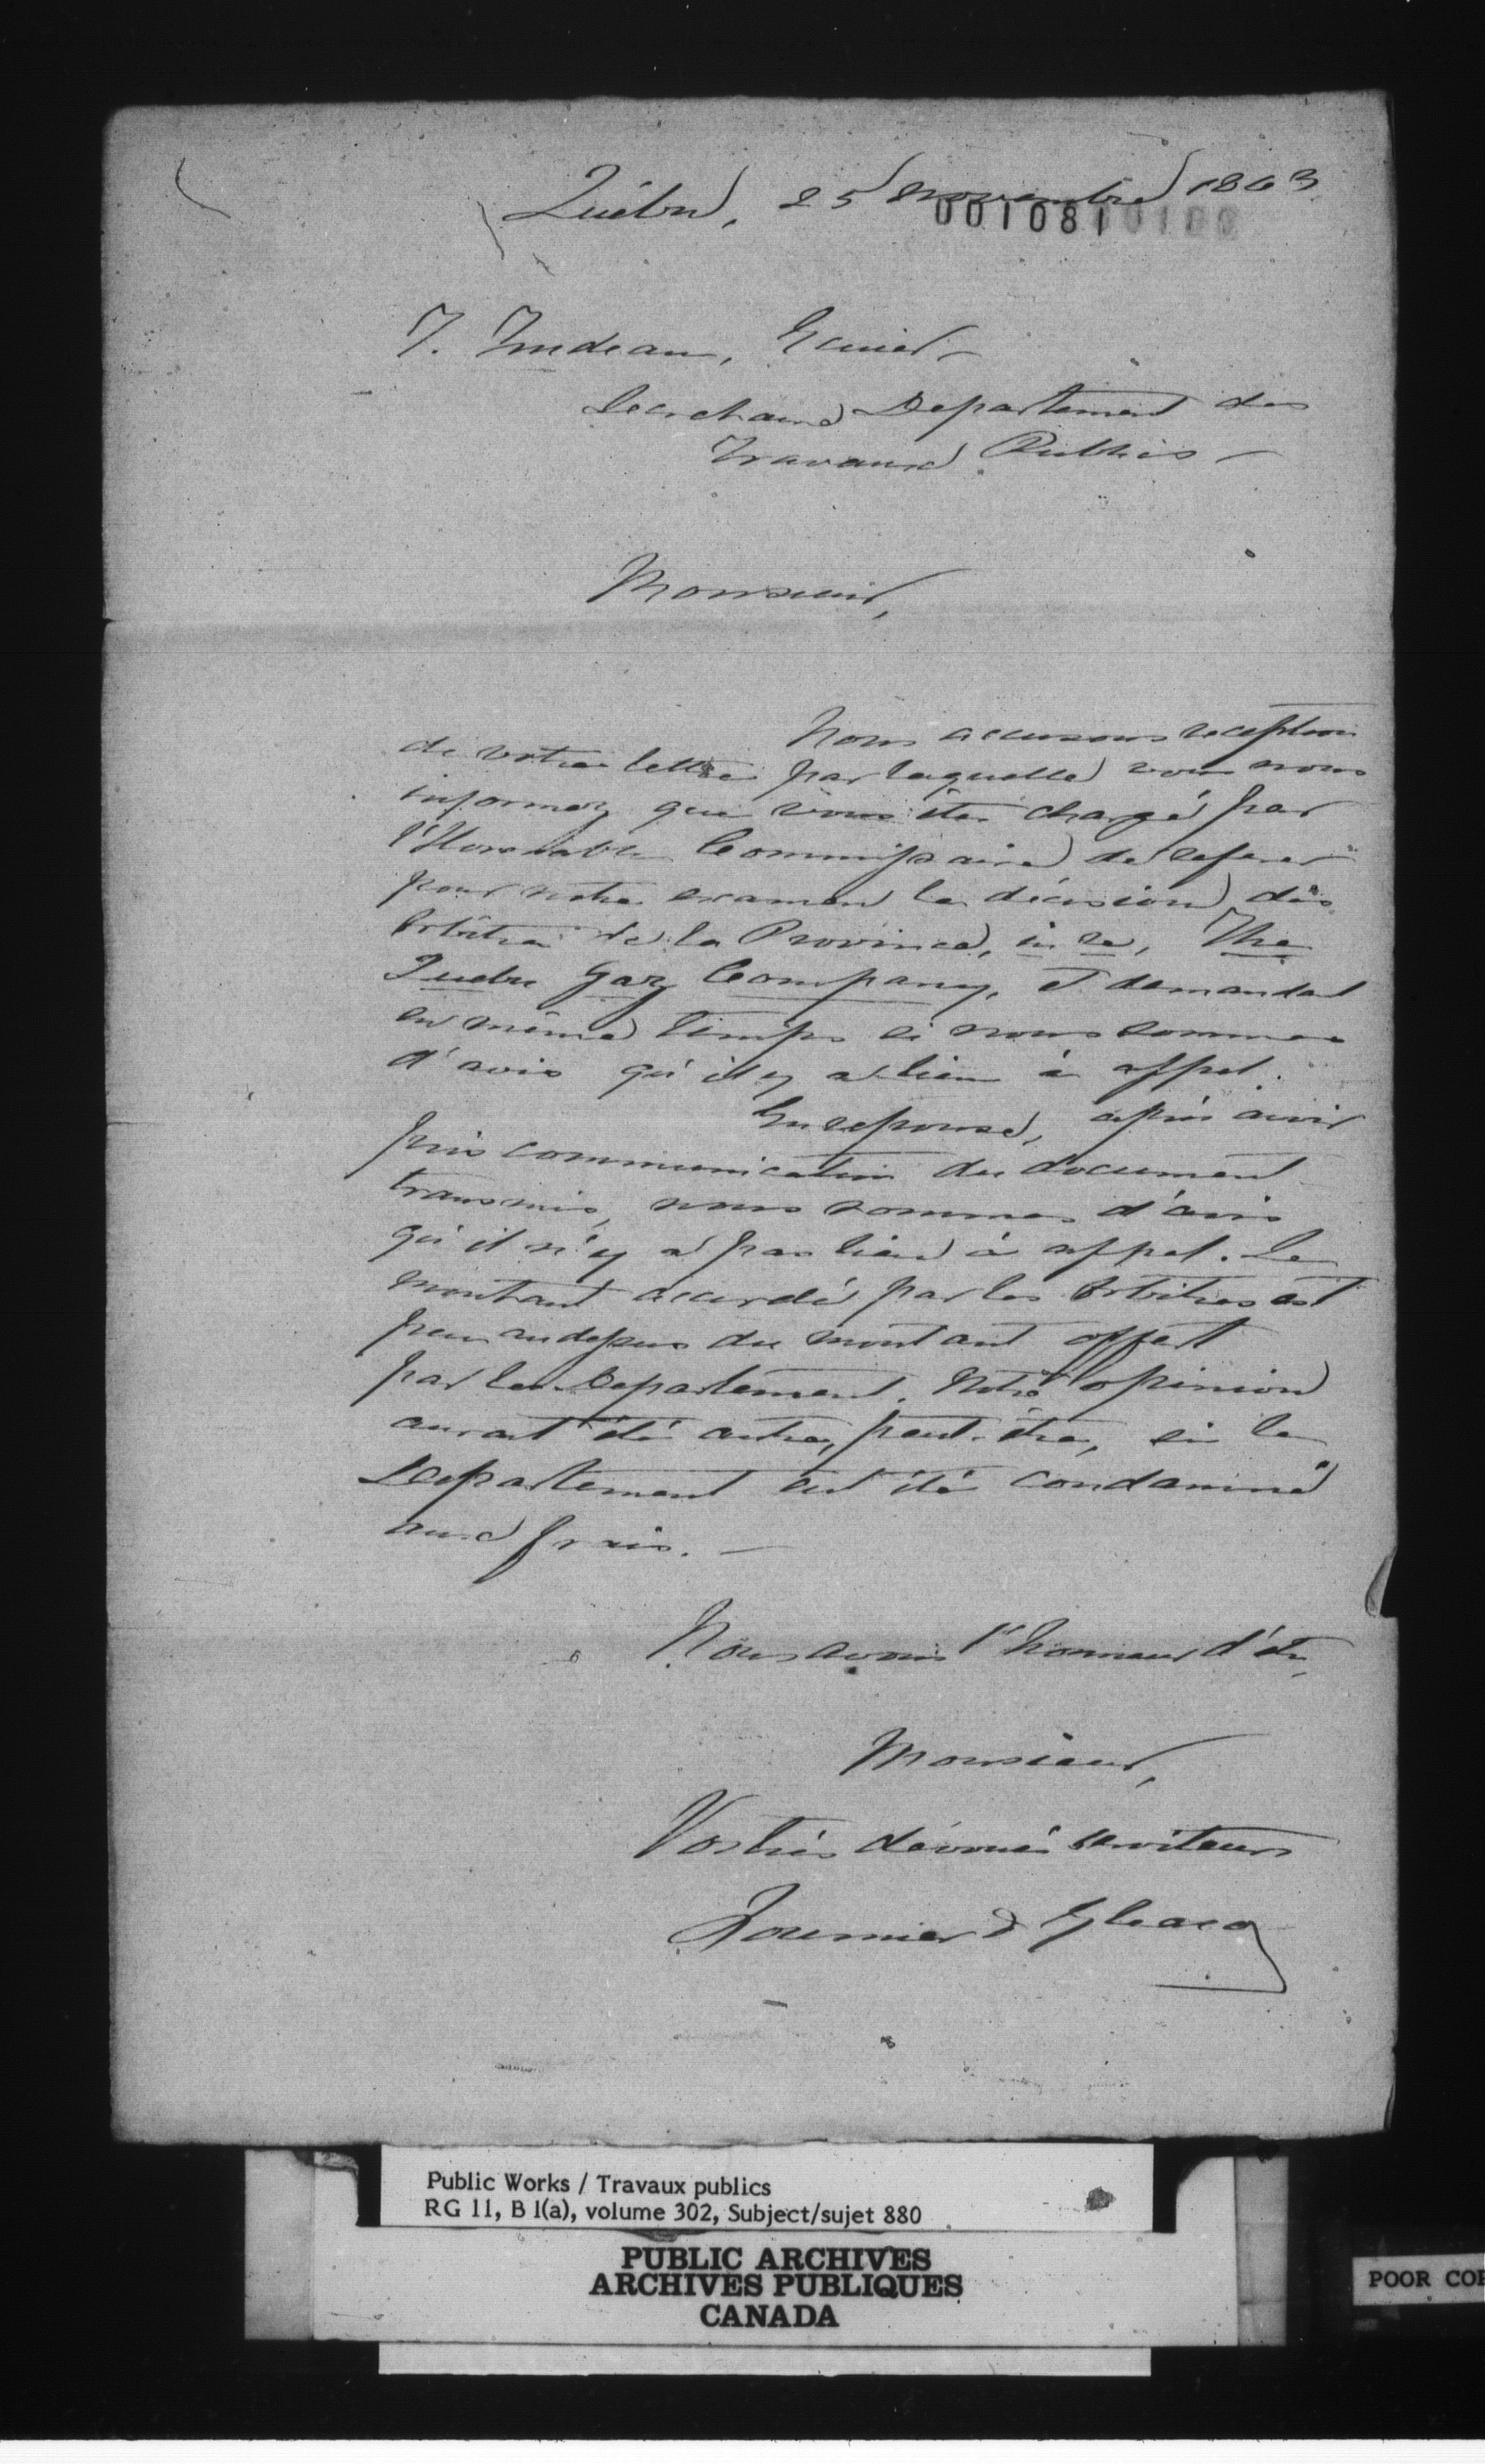 Québec, 25 Novembre 1863
0010810100
T. Trudeau, Ecuier
Secretaire Departement des
Travaux Publics —
Monsieur,
Nous accusons reception
de votre lettre par laquelle vous nous
informez que vous êtes chargé par
l'Honorable Commissaire de referer
pour notre examen la décision des
Arbitres de la Province, in re, The
Quebec Gaz Company, et demandant
en même temps si nous sommes
d'avis qu'il y a lieu à appel.
En reponse, après avoir
pris communication du document
transmis, nous sommes d'avis
qu'il n'y a pas lieu à appel. Le
montant accordé par les Arbitres est
peu audessus du montant offert
par le Departement. Notre opinion
aurait été autre, peut-être, si le
Departement eut été condamné
aux frais. —
Nous avons l'honneur d'être,
Monsieur,
Vos très dévoués serviteurs
Fournier & Gleason
Public Works / Travaux publics
RG 11, B 1(a), volume 302, Subject/sujet 880
PUBLIC ARCHIVES
ARCHIVES PUBLIQUES
CANADA
POOR COP